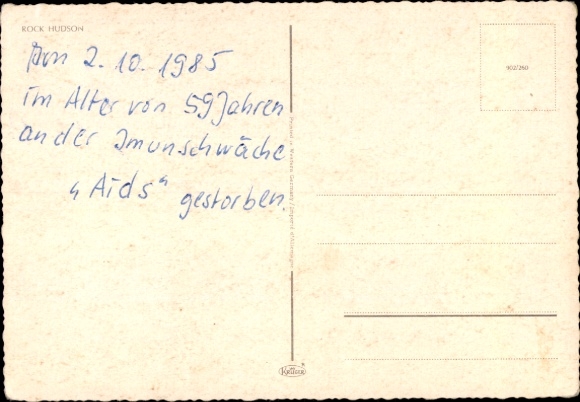 ROCK HUDSON
Am 2.10.1985
im Alter von 59 Jahren
an der Imunschwäche
„Aids“ gestorben.
902/260
Krüger